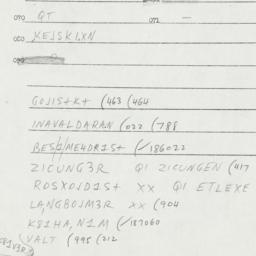 070 QT 072 —
080 KEJSKLXN
090
GOJIS+K+ (463 (464
INAVALDARAN (022 (788
BES ME4DR1S+ (/186022
ZICUNG3R QI ZICUNGEN (417
ROSXOJD1S+ XX QI ETLEXE
LA,NGBOJM3R XX (904
K81HA,N1M (/187060
VALT (995 (212